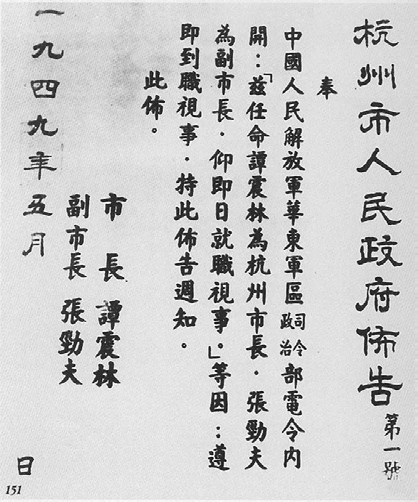 杭州市人民政府佈告 第一號
奉
中國人民解放軍華東軍區司令政治部電令內
開：「茲任命譚震林為杭州市長．張勁夫
為副市長．仰即日就職視事。」等因：遵
即到職視事．持此佈告週知。
此佈。
市長 譚震林
副市長 張勁夫
一九四九年五月 日
151